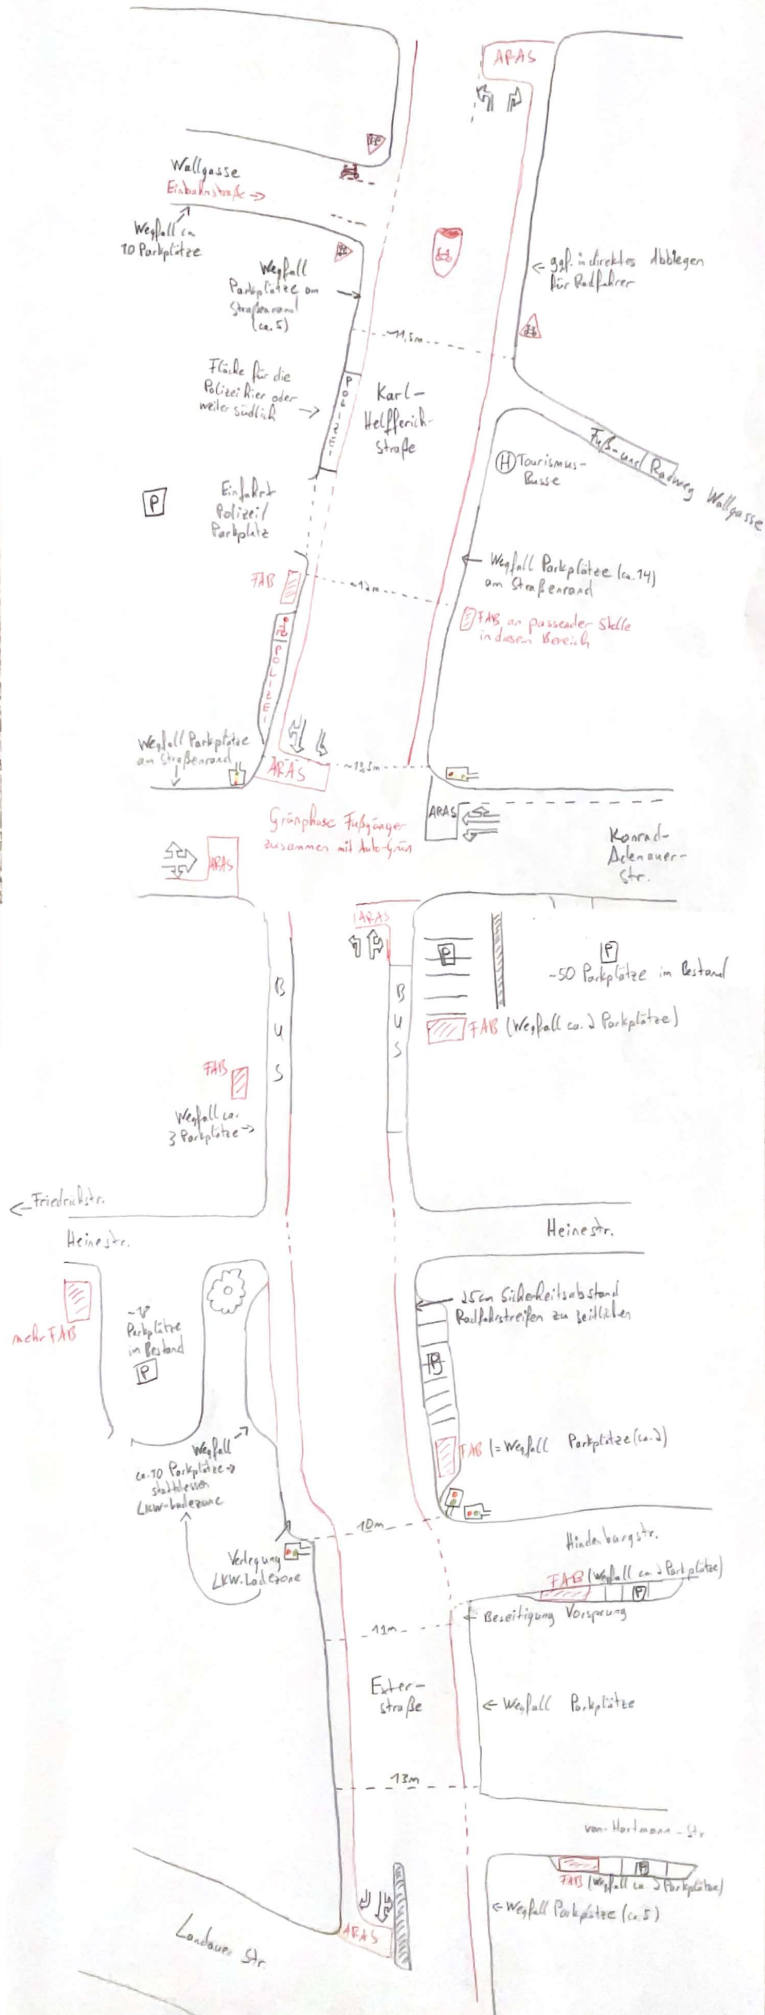 ARAS
Wallgasse
Einbahnstraße →
Wegfall ca.
10 Parkplätze
Wegfall
Parkplätze am
Straßenrand
(ca. 5)
← ggf. indirektes Abbiegen
für Radfahrer
~11,5m
Fläche für die
Polizei hier oder
weiter südlich
POLIZEI
Karl-
Helfferich-
Straße
Fuß- und Radweg Wallgasse
H Tourismus-
Busse
P
Einfahrt
Polizei/
Parkplatz
← Wegfall Parkplätze (ca. 14)
am Straßenrand
FAB
~12m
FAB an passender Stelle
in diesem Bereich
POLIZEI
Wegfall Parkplätze
am Straßenrand
ARAS
~12,5m
ARAS
Grünphase Fußgänger
zusammen mit Auto-Grün
Konrad-
Adenauer-
Str.
ARAS
ARAS
BUS
BUS
P
P
~50 Parkplätze im Bestand
FAB (Wegfall ca. 2 Parkplätze)
FAB
Wegfall ca.
3 Parkplätze →
← Friedrichstr.
Heinestr.
Heinestr.
mehr FAB
Parkplätze
im Bestand
P
25cm Sicherheitsabstand
Radfahrstreifen zu seitlichen
P
FAB (= Wegfall Parkplätze (ca. 2)
Wegfall
ca. 10 Parkplätze →
stattdessen
LKW-Ladezone
10m
Hindenburgstr.
Verlegung
LKW-Ladezone
FAB (Wegfall ca. 2 Parkplätze)
P
← Beseitigung Vorsprung
11m
Exter-
straße
← Wegfall Parkplätze
13m
von-Hartmann-Str.
P
FAB (Wegfall ca. 2 Parkplätze)
← Wegfall Parkplätze (ca. 5)
ARAS
Landauer Str.